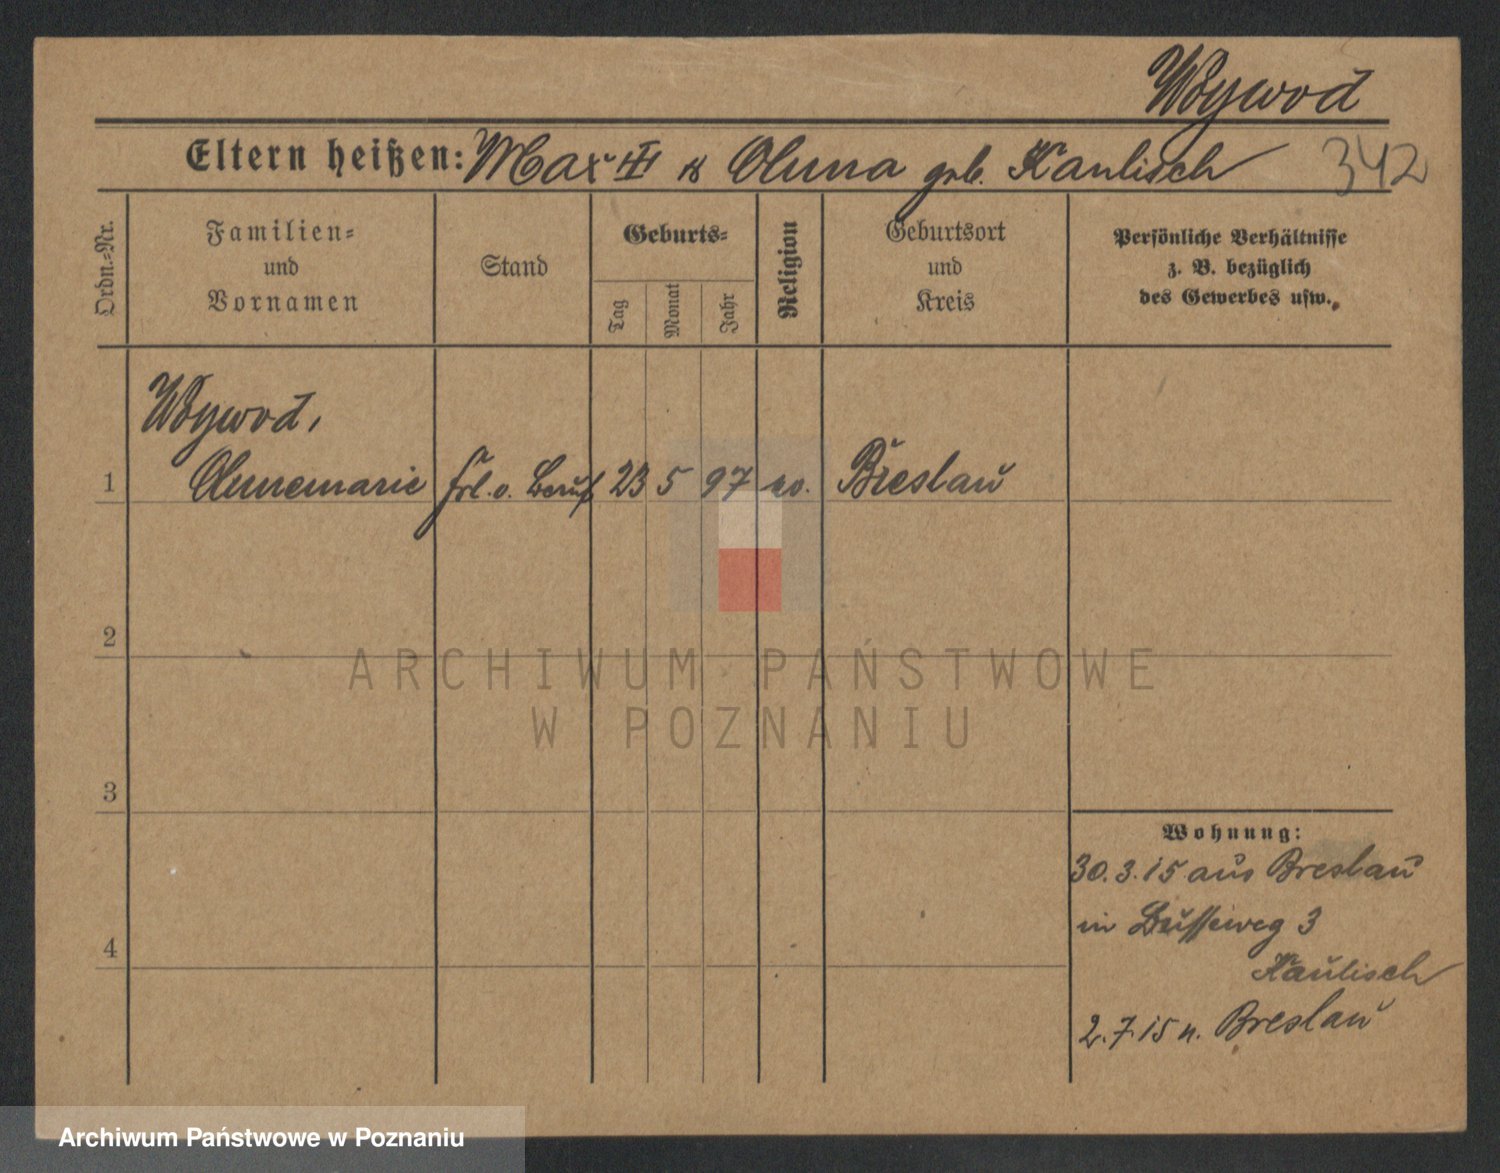 Woywod
Eltern heißen: Max III u Anna geb. Kaulisch 342
Ordn.-Nr.
Familien-
und
Vornamen
Stand
Geburts-
Tag
Monat
Jahr
Religion
Geburtsort
und
Kreis
Persönliche Verhältnisse
z. B. bezüglich
des Gewerbes usw.
Woywod,
1 Annemarie Frl. o. Beruf 23 5 97 Breslau
2
3
4
Wohnung:
30.3.15 aus Breslau
in 3
Kaulisch
2.7.15 n. Breslau
ARCHIWUM PAŃSTWOWE
W POZNANIU
Archiwum Państwowe w Poznaniu